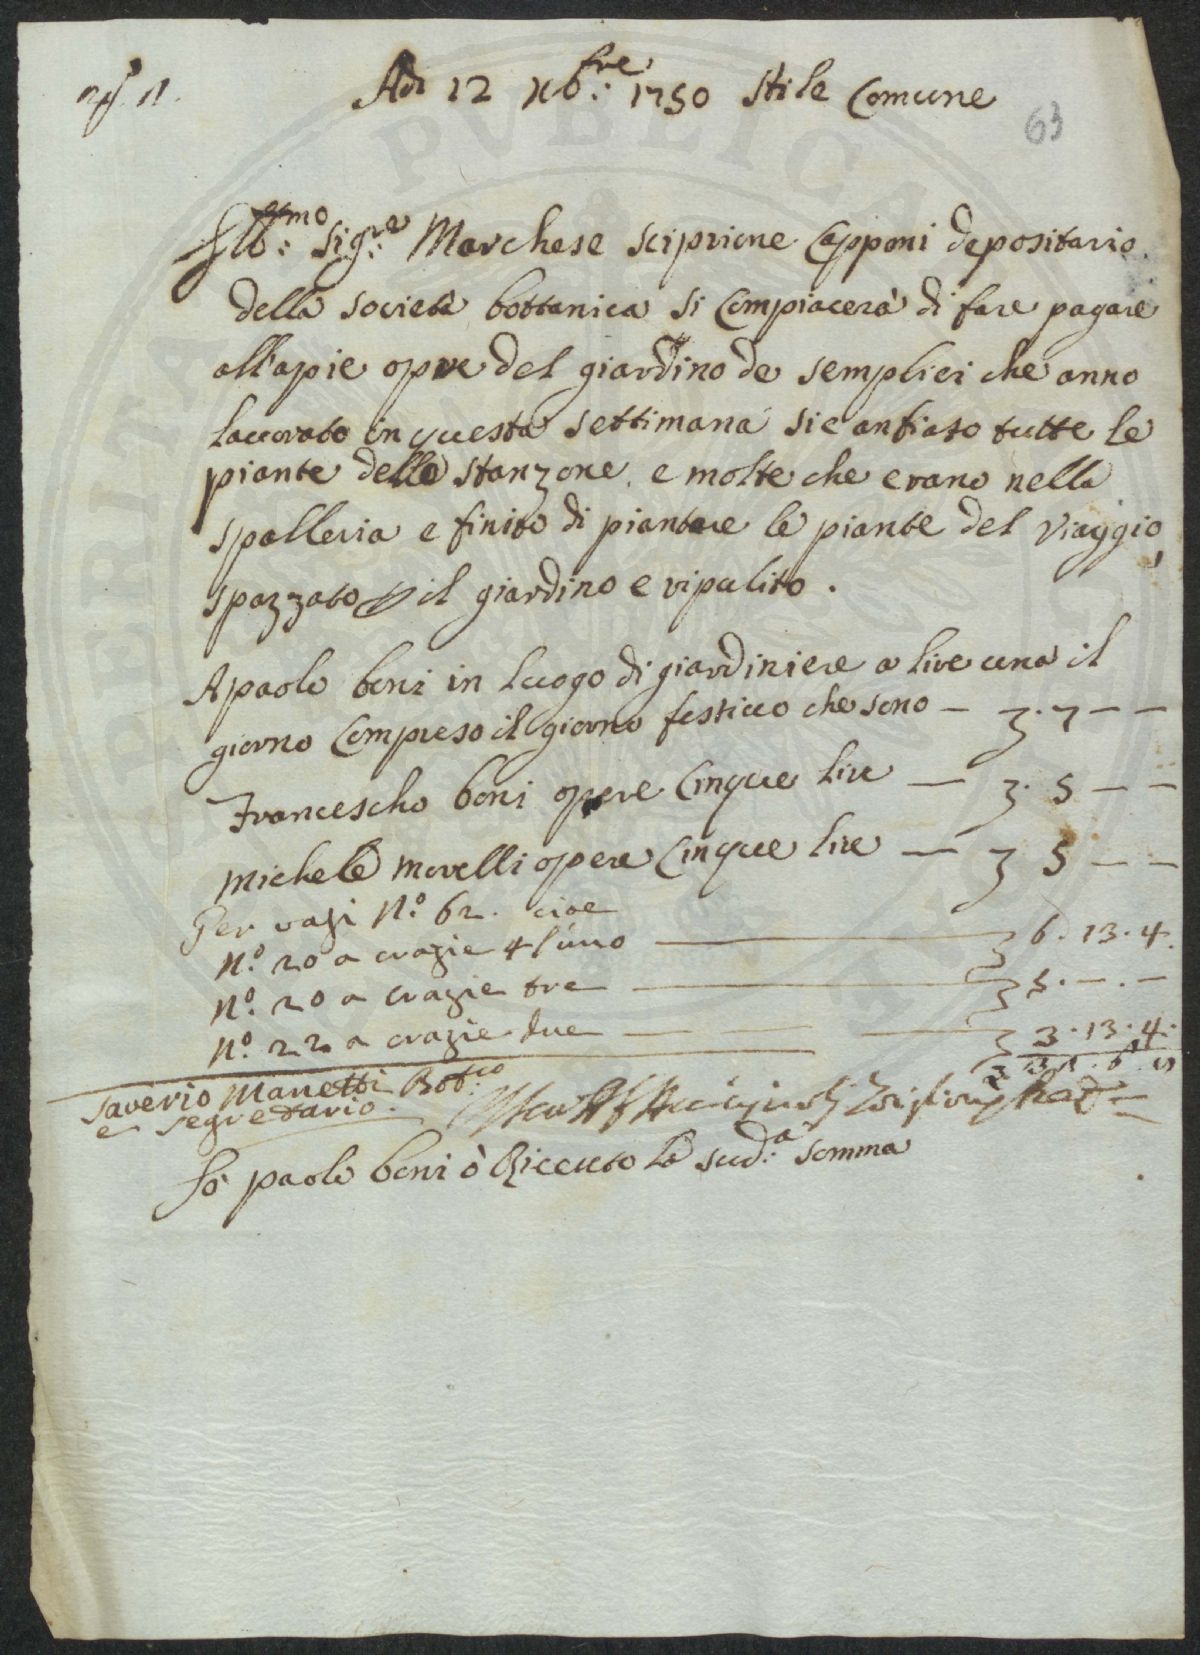 Adi 12 Xb:fre 1750 stile Comune
63
Ill:mo sig:re Marchese scipione Capponi depositario
della società bottanica si Compiacerà di fare pagare
all'apie opre del giardino de semplici che anno
lauorato in questa settimana si e anfiato tutte le
piante dello stanzone e molte che erano nella
spalleria e finito di piantare le piante del Viaggio,
spazzato il giardino e ripulito.
A paolo boni in luogo di giardiniere a lire una il
giorno Compreso il giorno festiuo che sono — 7 — —
Francescho boni opere Cinque lire — 5 — —
Michele morelli opere Cinque lire — 5 — —
Per vasi N.º 62. cioe
N.º 20 a crazie 4 l'uno — 6. 13. 4.
N.º 20 a crazie tre — 5. —. —
N.º 22 a crazie due — 3. 13. 4.
Saverio Manetti Bot:co
e Segretario.
Io paolo boni ò Riceuto la sud:a somma